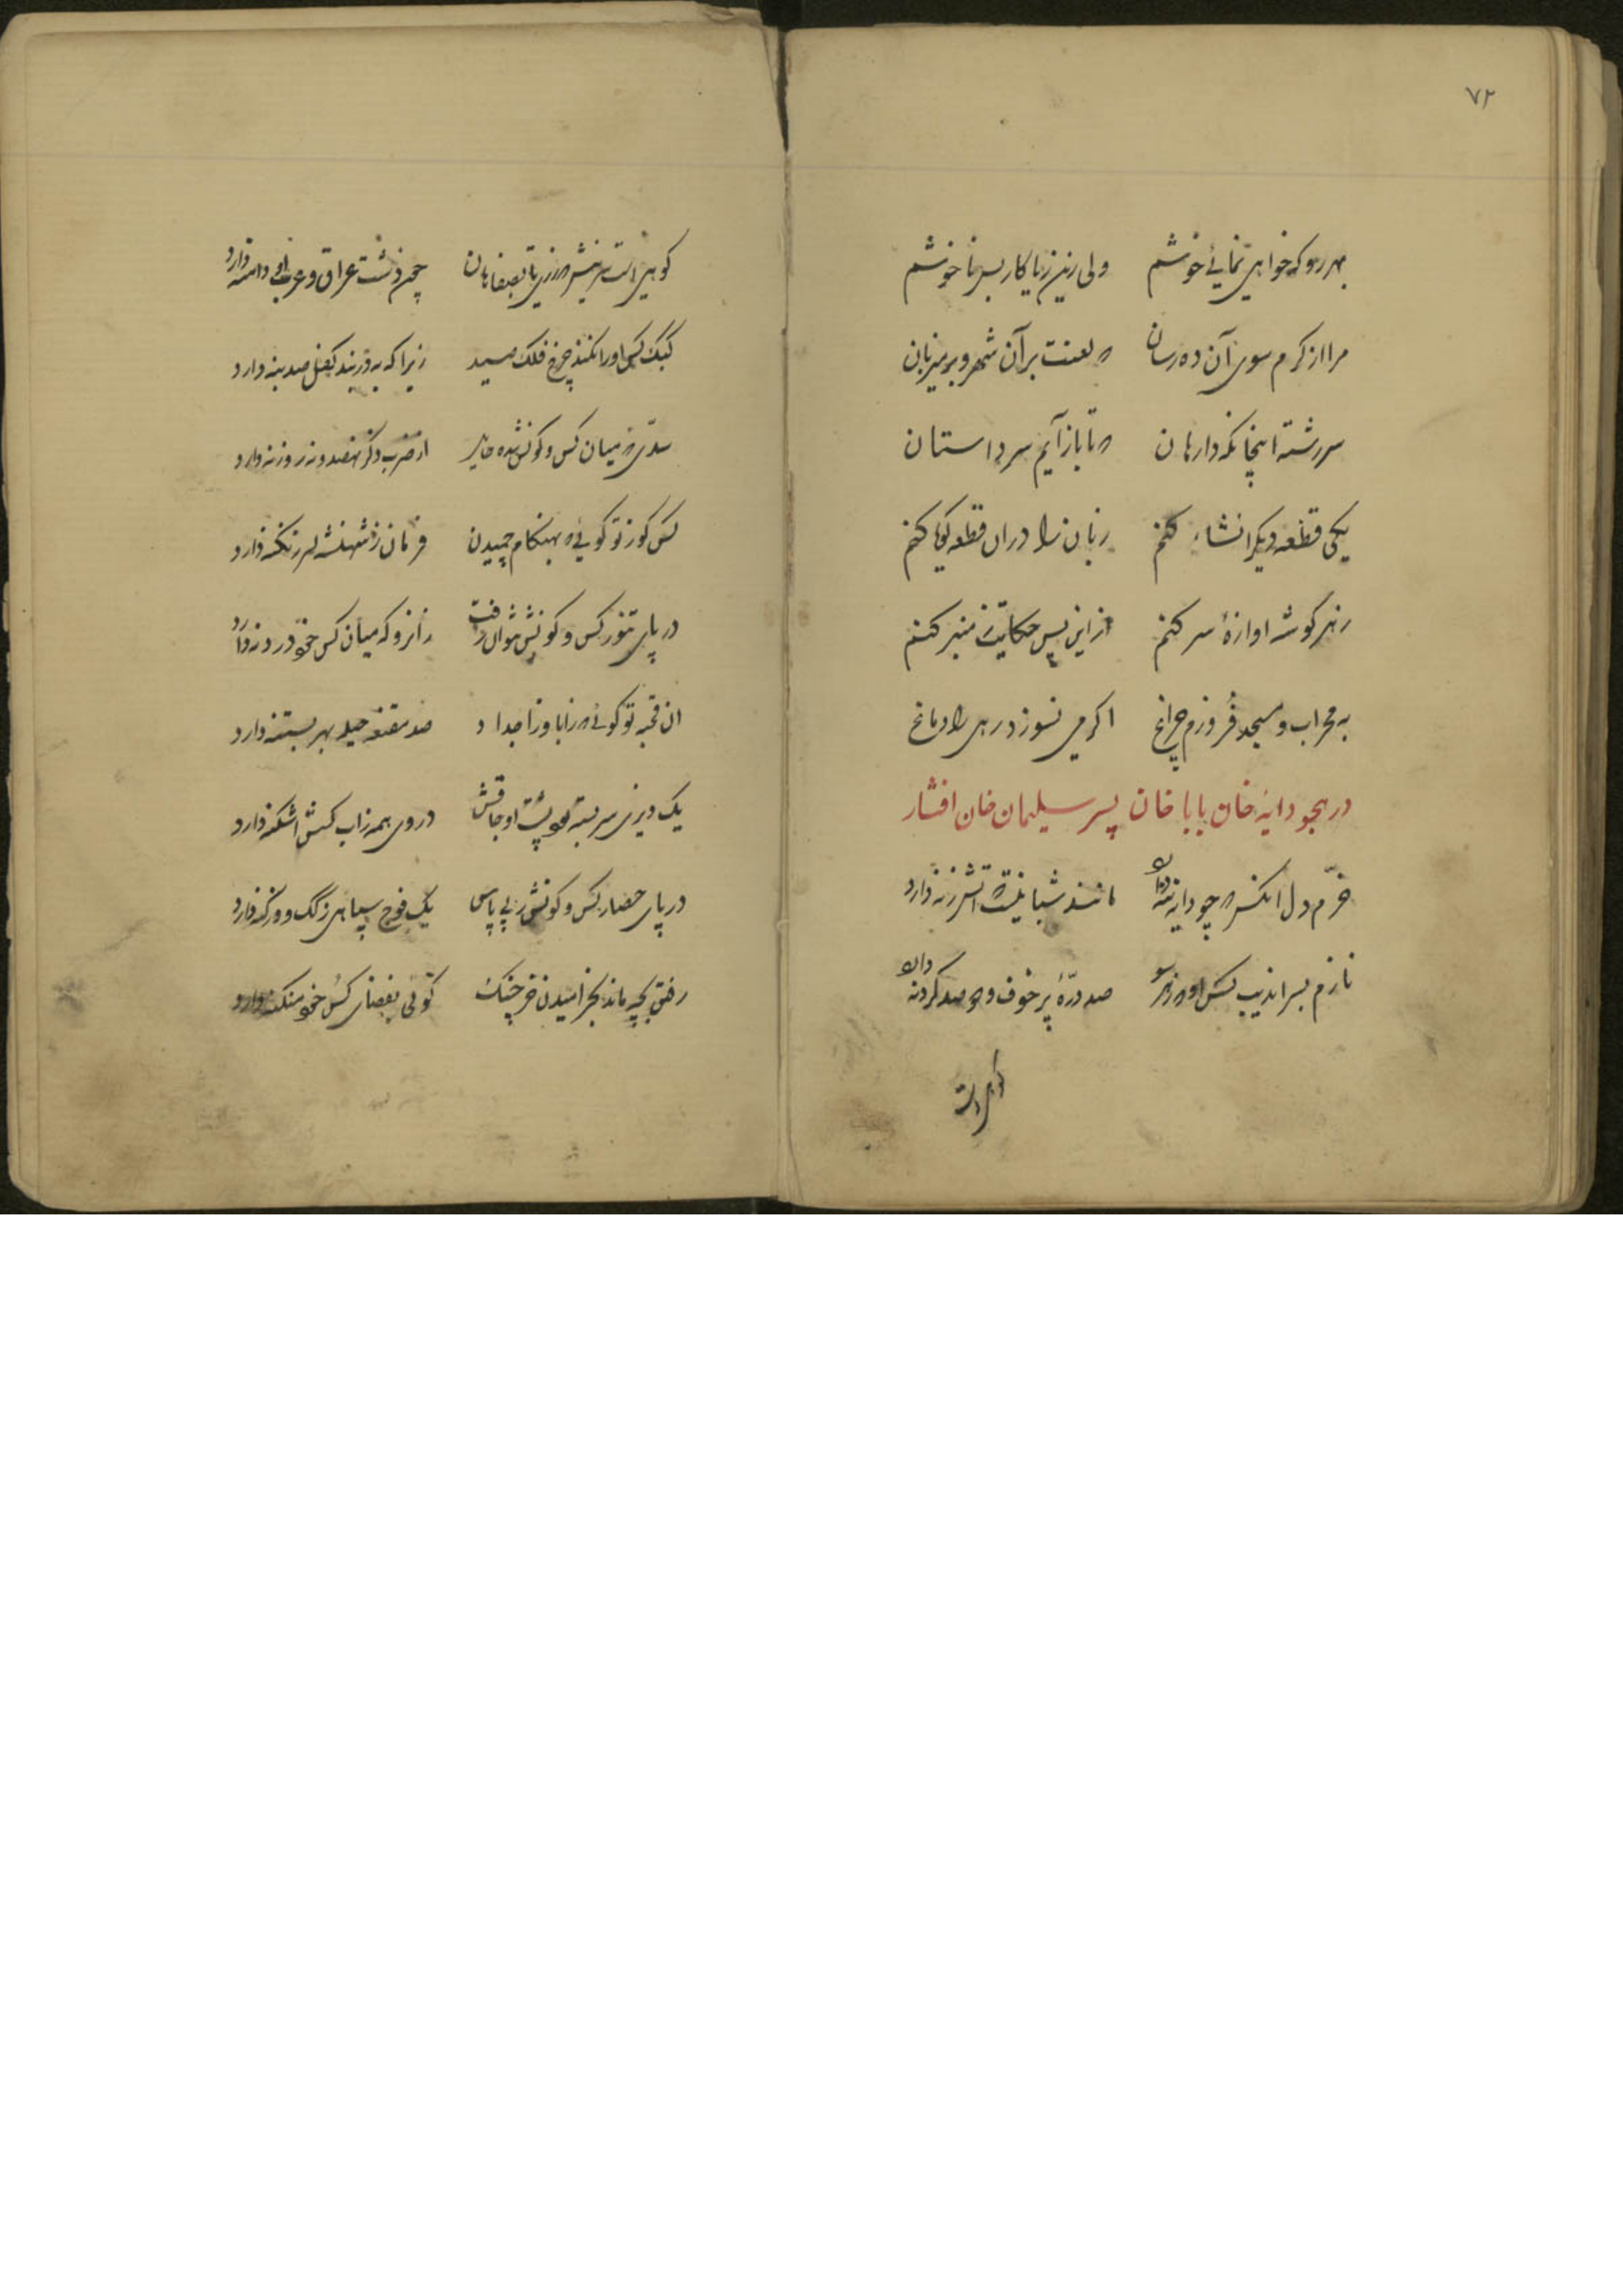 ۷۲
بهر رو که خواهی نمائی خوشم ولی زین زیا کار بس ناخوشم
مرا از کرم سوی آن ده رسان که لعنت بر آن شهر و بر میزبان
سر رشته اینجا نگه دار هان که تا باز آیم سر داستان
یکی قطعه دیگر انشاء کنم زبان را در ان قطعه گویا کنم
ز هر گوشه اوازهٔ سر کنم از این پس حکایت ز منبر کنم
به محراب و مسجد فروزم چراغ اگر می نسوزد رهی را دماغ
در هجو دایه خان بابا خان پسر سلیمان خان افشار
خرّم دل انکس که چو دایه ننه دارد مانند شبانیست که اتش زنه دارد
نازم بسراندیب کس او که ز هر سو صد درّهٔ پر خوف و دو صد گردنه دارد
کوهی است سرینش که ز ری تا بصفاهان چون دشت عراق و عرب او دامنه دارد
کبک کس او را نکند چرخ فلک صید زیرا که به در بند کفل صد بنه دارد
سدّی که میان کس و کونش شده حایل از ضرب ذکر هفصد و نه روزنه دارد
کس کوز تو گوئی که بهنگام چمیدن فرمان ز شهنشه لر زنگنه دارد
در پای تنور کس و کونش نتوان رفت زانرو که میان کس خود در دنه دارد
ان قحبه تو گوئی که ز ابا و ز اجداد صد مقنعه حیله بهر بستنه دارد
یک دیزی سر بسته که پشت اوجاقش در وی همه ز اب کسش اشکنه دارد
در پای حصار کس و کونش ز پی پاس یک فوج سپاهی ز گک و ورکنه دارد
رفتن بچه ماند بخرامیدن خرچنگ گوئی بفضای کس خود منگنه دارد